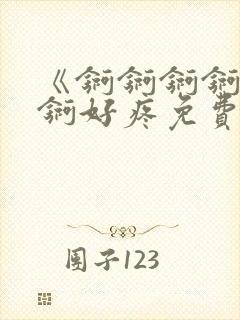 《锕锕锕锕
锕好疼免費
团子123